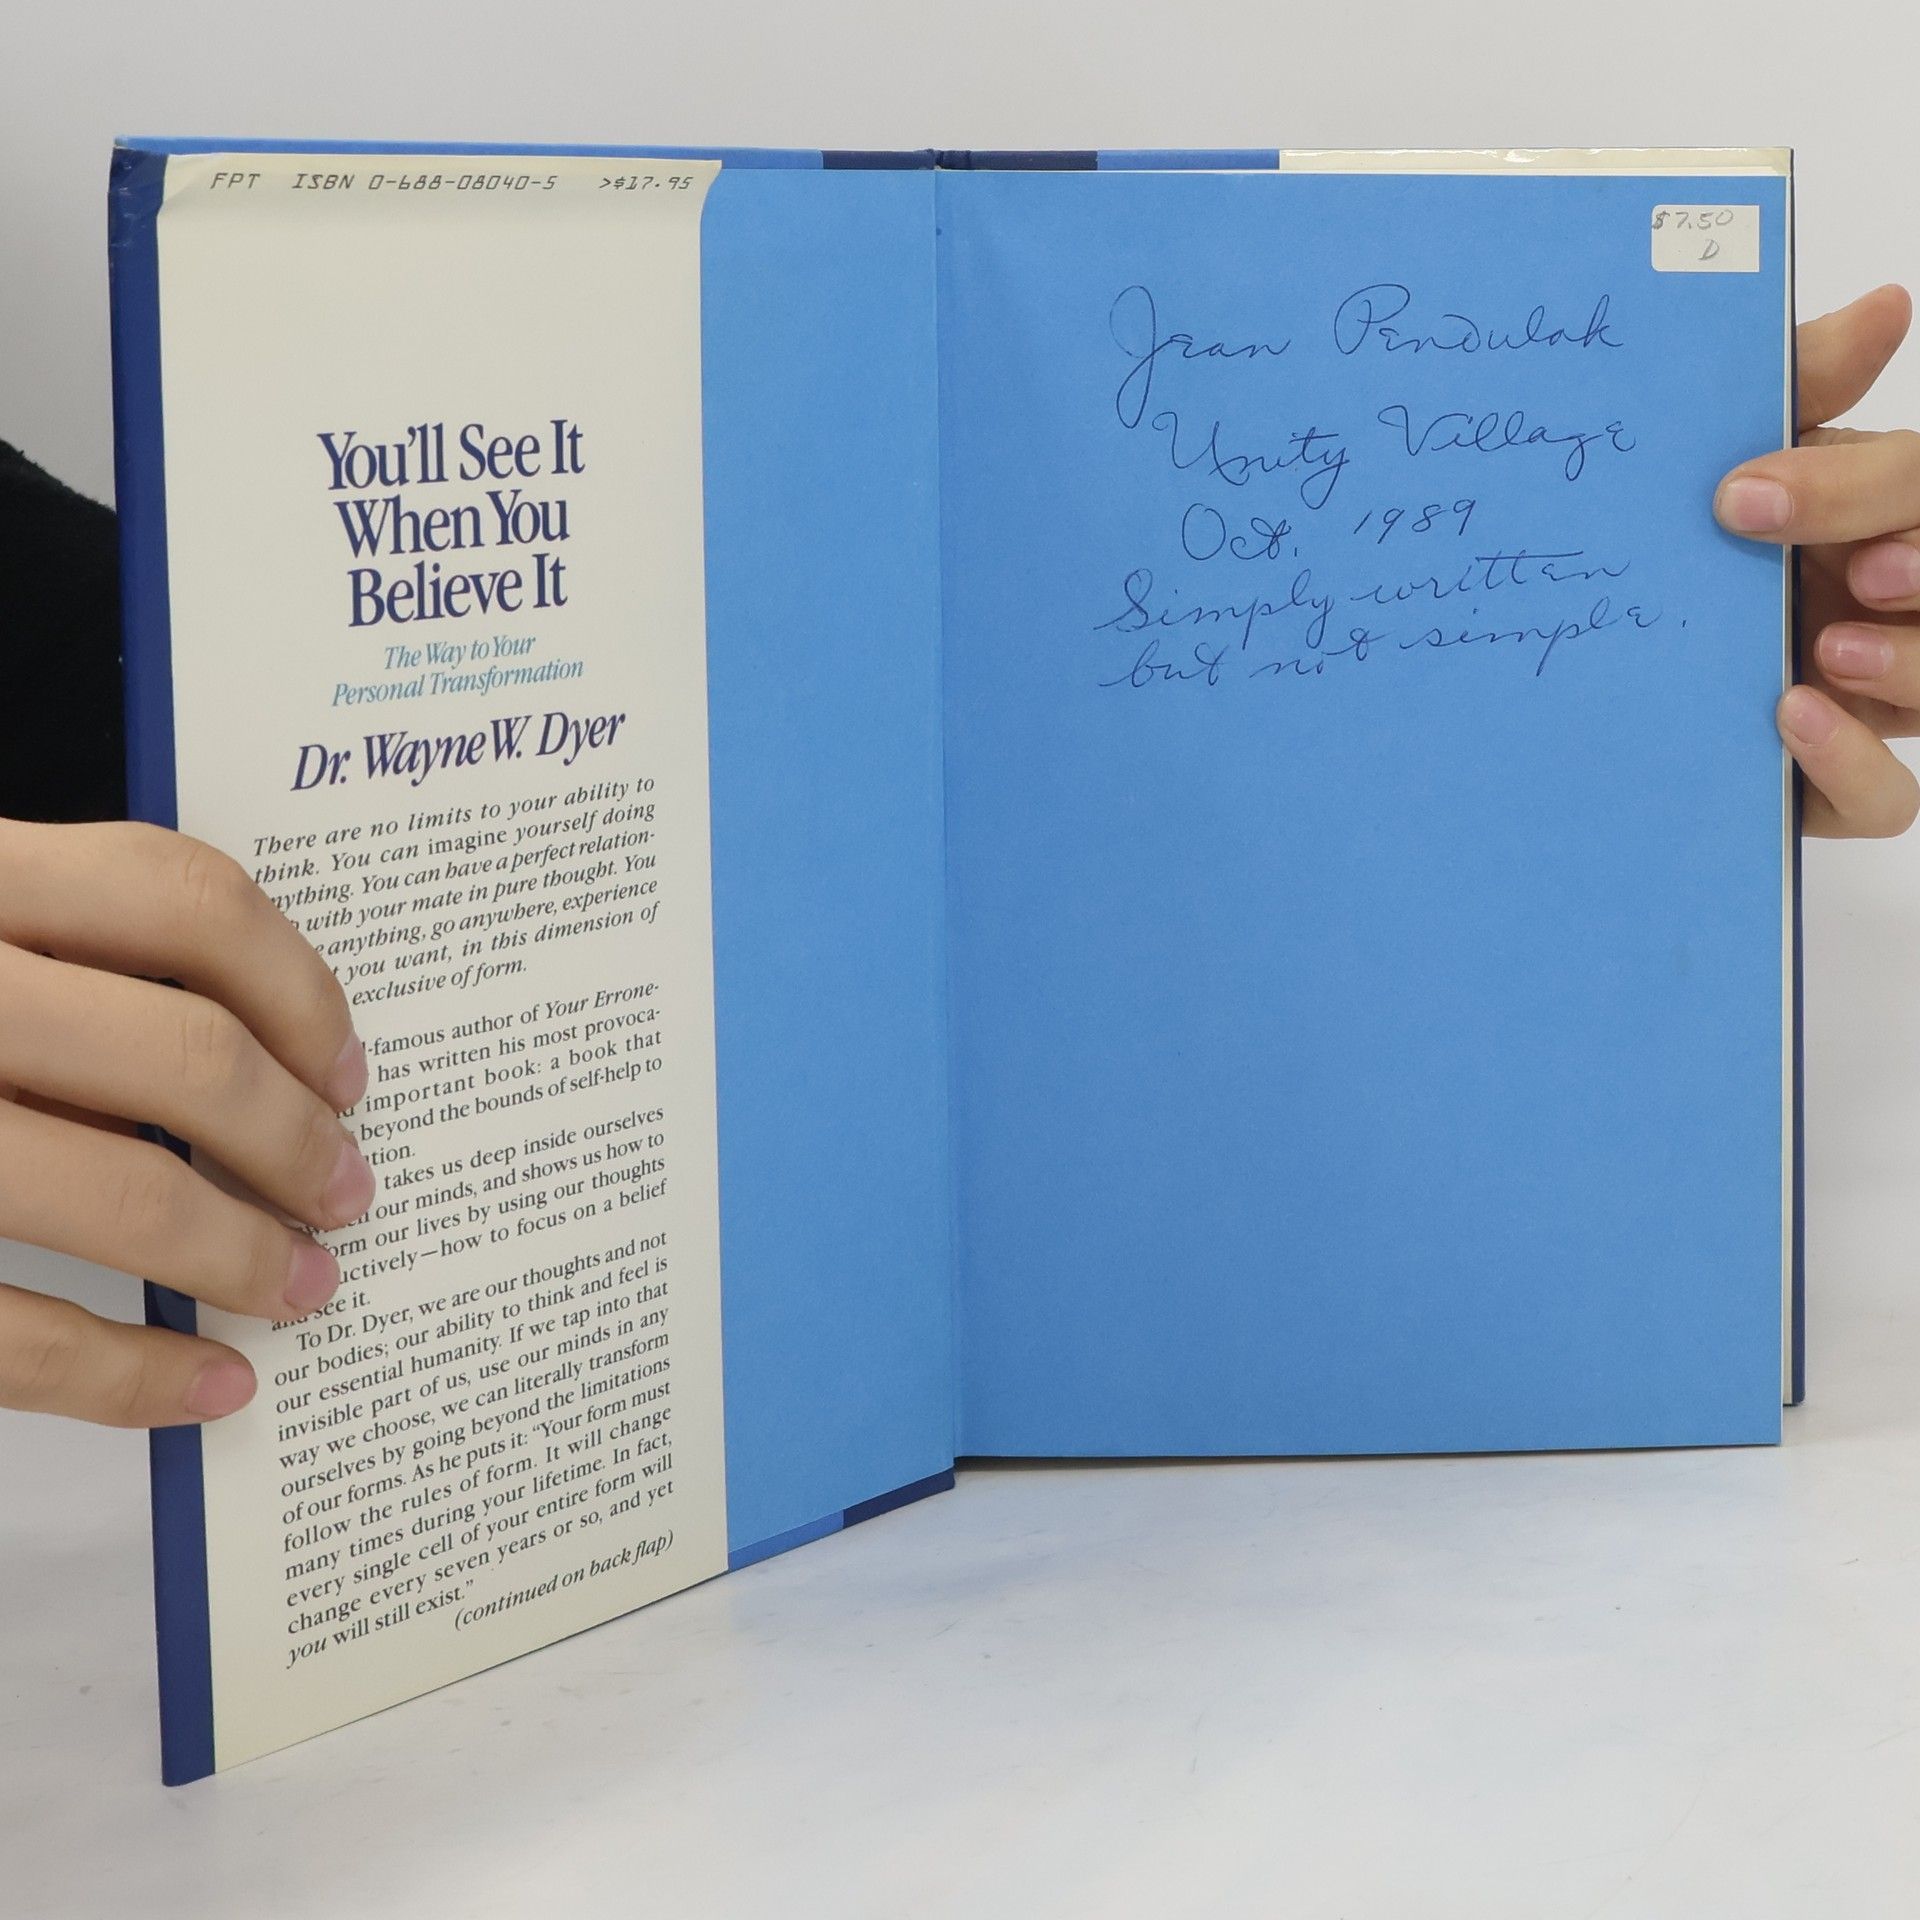 FPT ISBN 0-688-08040-5 >$17.95
You'll See It
When You
Believe It
The Way to Your
Personal Transformation
Dr. Wayne W. Dyer
There are no limits to your ability to
think. You can imagine yourself doing
nything. You can have a perfect relation-
with your mate in pure thought. You
anything, go anywhere, experience
you want, in this dimension of
exclusive of form.
-famous author of Your Errone-
has written his most provoca-
important book: a book that
beyond the bounds of self-help to
tion.
takes us deep inside ourselves
our minds, and shows us how to
orm our lives by using our thoughts
uctively—how to focus on a belief
and see it.
To Dr. Dyer, we are our thoughts and not
our bodies; our ability to think and feel is
our essential humanity. If we tap into that
invisible part of us, use our minds in any
way we choose, we can literally transform
ourselves by going beyond the limitations
of our forms. As he puts it: “Your form must
follow the rules of form. It will change
many times during your lifetime. In fact,
every single cell of your entire form will
change every seven years or so, and yet
you will still exist.”
(continued on back flap)
$7.50
D
Jean Pendulak
Unity Village
Oct. 1989
Simply written
but not simple.